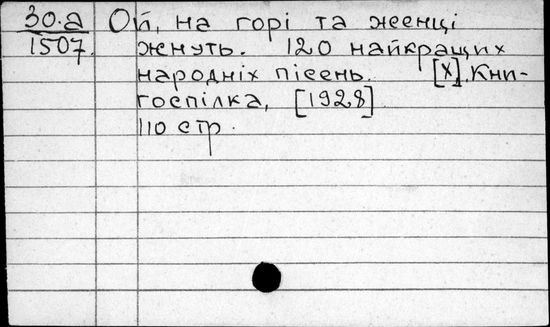 30.а Ой, на горі та женці
1507. жнуть. 120 найкращих
народніх пісень. [Х]. Кни-
госпілка, [1928]
110 стр.